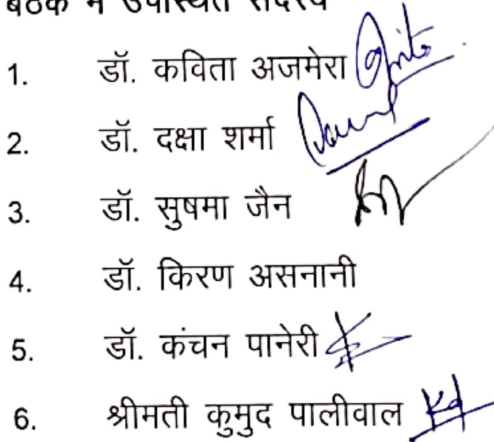 बैठक में उपस्थित सदस्य
1. डॉ. कविता अजमेरा
2. डॉ. दक्षा शर्मा
3. डॉ. सुषमा जैन
4. डॉ. किरण असनानी
5. डॉ. कंचन पानेरी
6. श्रीमती कुमुद पालीवाल